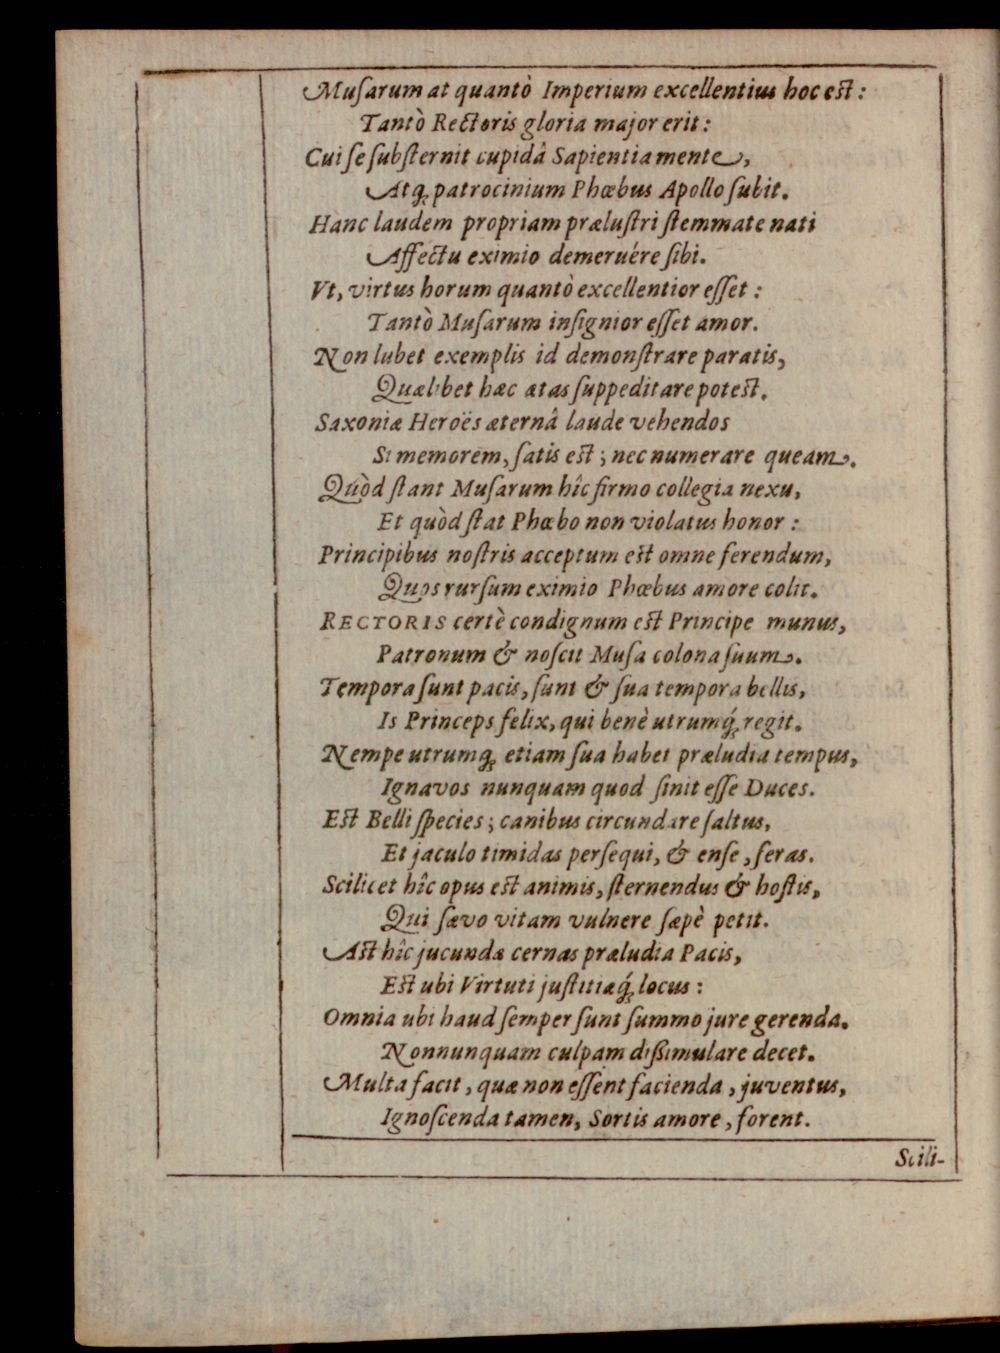 Muſarum at quantò Imperium excellentius hoc eſt:
Tantò Rectoris gloria major erit:
Cui ſe ſubſternit cupidâ Sapientia mente,
Atq́; patrocinium Phœbus Apollo ſubit.
Hanc laudem propriam præluſtri ſtemmate nati
Affectu eximio demeruére ſibi.
Vt, virtus horum quantò excellentior eſſet:
Tantò Muſarum inſignior eſſet amor.
Non lubet exemplis id demonſtrare paratis,
Quælibet hæc ætas ſuppeditare poteſt.
Saxoniæ Heroës æternâ laude vehendos
Si memorem, ſatis eſt; nec numerare queam.
Quòd ſtant Muſarum hîc firmo collegia nexu,
Et quòd ſtat Phœbo non violatus honor:
Principibus noſtris acceptum eſt omne ferendum,
Quos rurſum eximio Phœbus amore colit.
RECTORIS certè condignum eſt Principe munus,
Patronum & noſcit Muſa colona ſuum.
Tempora ſunt pacis, ſunt & ſua tempora bellis,
Is Princeps felix, qui benè utrumq́; regit.
Nempe utrumq; etiam ſua habet præludia tempus,
Ignavos nunquam quod ſinit eſſe Duces.
Eſt Belli ſpecies; canibus circundare ſaltus,
Et jaculo timidas perſequi, & enſe, feras.
Scilicet hîc opus eſt animis, ſternendus & hoſtis,
Qui ſævo vitam vulnere ſæpè petit.
Aſt hîc jucundæ cernas præludia Pacis,
Eſt ubi Virtuti juſtitiæq́; locus:
Omnia ubi haud ſemper ſunt ſummo jure gerenda.
Nonnunquam culpam dißimulare decet.
Multa facit, quæ non eſſent facienda, juventus,
Ignoſcenda tamen, Sortis amore, forent.
Scili-